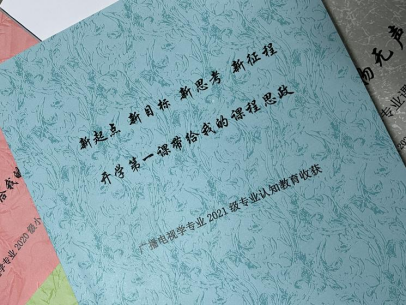 新起点 新目标 新思考 新征程
开学第一课带给我的课程思政
广播电视学专业 2021 级专业认知教育收获
物无声
专业课
给我的
学专业 2020 级小